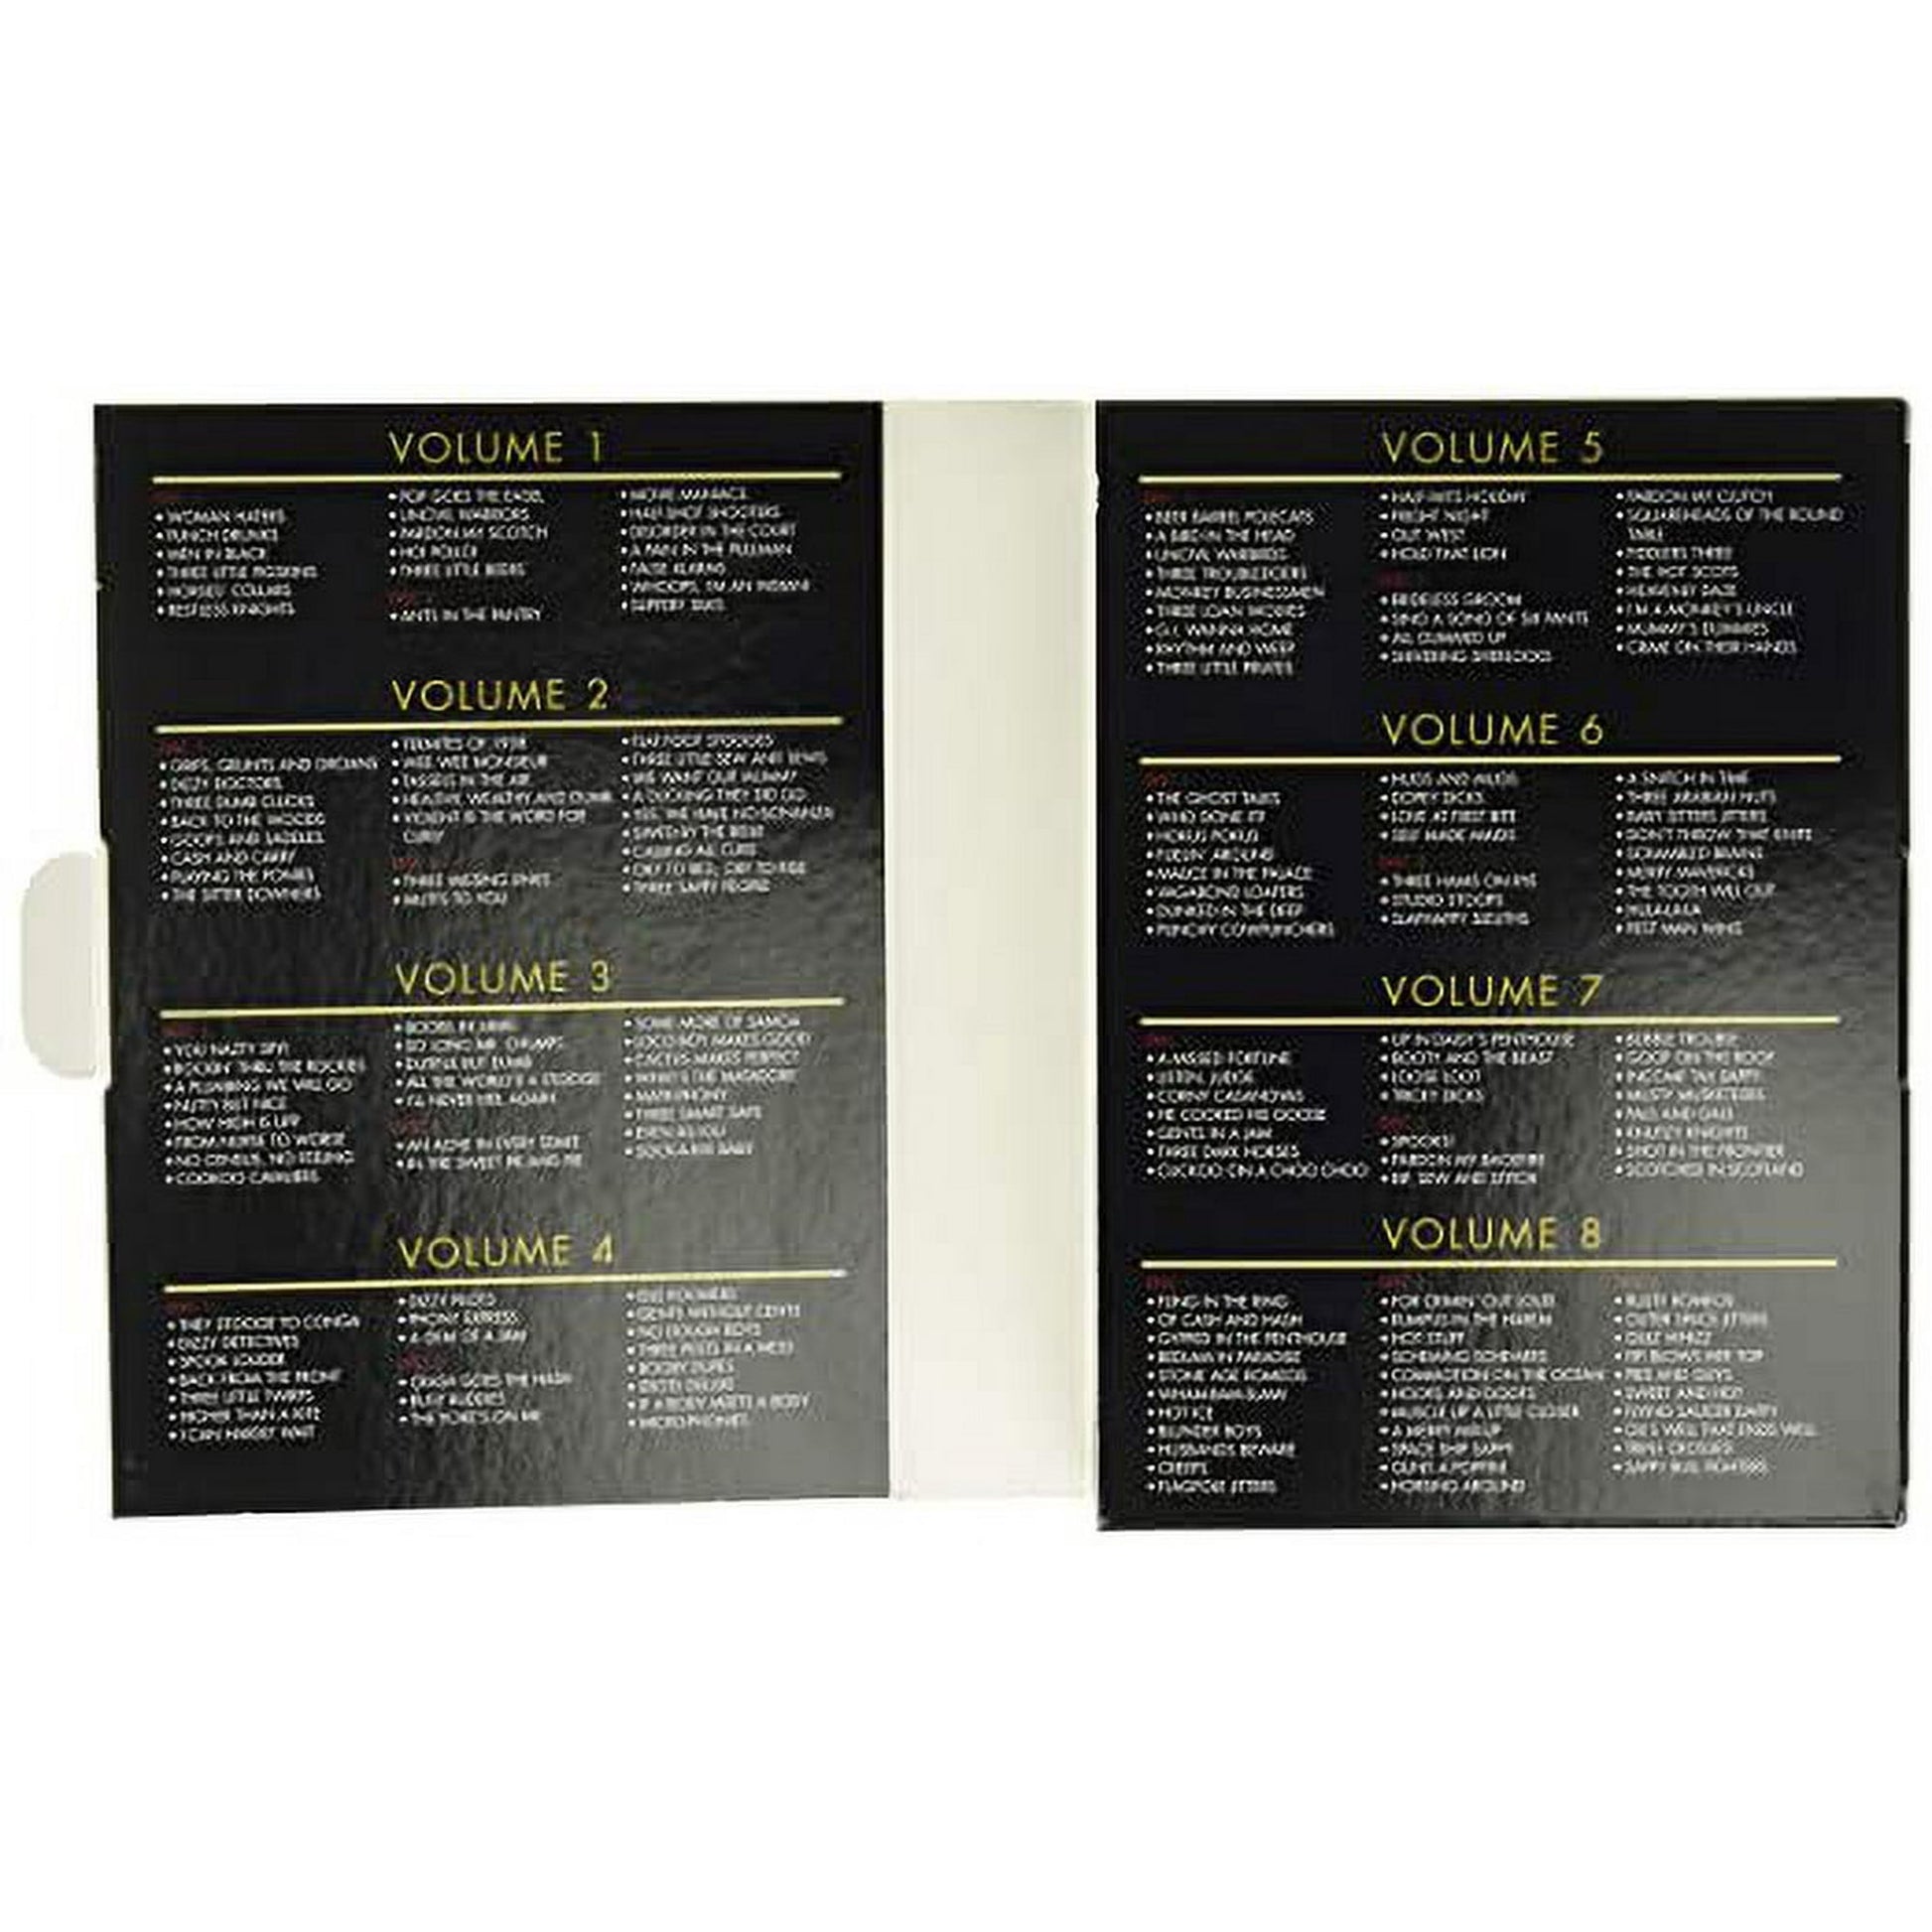 VOLUME 1
• WOMAN HATERS
• PUNCH DRUNKS
• MEN IN BLACK
• THREE LITTLE PIGSKINS
• HORSES' COLLARS
• RESTLESS KNIGHTS
• POP GOES THE EASEL
• UNCIVIL WARRIORS
• PARDON MY SCOTCH
• HOI POLLOI
• THREE LITTLE BEERS
• ANTS IN THE PANTRY
• MOVIE MANIACS
• HALF-SHOT SHOOTERS
• DISORDER IN THE COURT
• A PAIN IN THE PULLMAN
• FALSE ALARMS
• WHOOPS, I'M AN INDIAN!
• SLIPPERY SILKS
VOLUME 2
• GRIPS, GRUNTS AND GROANS
• DIZZY DOCTORS
• THREE DUMB CLUCKS
• BACK TO THE WOODS
• GOOFS AND SADDLES
• CASH AND CARRY
• PLAYING THE PONIES
• THE SITTER DOWNERS
• TERMITES OF 1938
• WEE WEE MONSIEUR
• TASSELS IN THE AIR
• HEALTHY, WEALTHY AND DUMB
• VIOLENT IS THE WORD FOR
CURLY
• THREE MISSING LINKS
• MUTTS TO YOU
• FLAT FOOT STOOGES
• THREE LITTLE SEW AND SEWS
• WE WANT OUR MUMMY
• A DUCKING THEY DID GO
• YES, WE HAVE NO BONANZA
• SAVED BY THE BELLE
• CALLING ALL CURS
• OILY TO BED, OILY TO RISE
• THREE SAPPY PEOPLE
VOLUME 3
• YOU NAZTY SPY!
• ROCKIN' THRU THE ROCKIES
• A PLUMBING WE WILL GO
• NUTTY BUT NICE
• HOW HIGH IS UP?
• FROM NURSE TO WORSE
• NO CENSUS, NO FEELING
• COOKOO CAVALIERS
• BOOBS IN ARMS
• SO LONG MR. CHUMPS
• DUTIFUL BUT DUMB
• ALL THE WORLD'S A STOOGE
• I'LL NEVER HEIL AGAIN
• AN ACHE IN EVERY STAKE
• IN THE SWEET PIE AND PIE
• SOME MORE OF SAMOA
• LOCO BOY MAKES GOOD
• CACTUS MAKES PERFECT
• WHAT'S THE MATADOR?
• MATRI-PHONY
• THREE SMART SAPS
• EVEN AS IOU
• SOCK-A-BYE BABY
VOLUME 4
• THEY STOOGE TO CONGA
• DIZZY DETECTIVES
• SPOOK LOUDER
• BACK FROM THE FRONT
• THREE LITTLE TWIRPS
• HIGHER THAN A KITE
• I CAN HARDLY WAIT
• DIZZY PILOTS
• PHONY EXPRESS
• A GEM OF A JAM
• CRASH GOES THE HASH
• BUSY BUDDIES
• THE YOKE'S ON ME
• IDLE ROOMERS
• GENTS WITHOUT CENTS
• NO DOUGH BOYS
• THREE PESTS IN A MESS
• BOOBY DUPES
• IDIOTS DELUXE
• IF A BODY MEETS A BODY
• MICRO-PHONIES
VOLUME 5
• BEER BARREL POLECATS
• A BIRD IN THE HEAD
• UNCIVIL WARBIRDS
• THREE TROUBLEDOERS
• MONKEY BUSINESSMEN
• THREE LOAN WOLVES
• G.I. WANNA HOME
• RHYTHM AND WEEP
• THREE LITTLE PIRATES
• HALF-WITS HOLIDAY
• FRIGHT NIGHT
• OUT WEST
• HOLD THAT LION
• BRIDELESS GROOM
• SING A SONG OF SIX PANTS
• ALL GUMMED UP
• SHIVERING SHERLOCKS
• PARDON MY CLUTCH
• SQUAREHEADS OF THE ROUND
TABLE
• FIDDLERS THREE
• THE HOT SCOTS
• HEAVENLY DAZE
• I'M A MONKEY'S UNCLE
• MUMMY'S DUMMIES
• CRIME ON THEIR HANDS
VOLUME 6
• THE GHOST TALKS
• WHO DONE IT?
• HOKUS POKUS
• FUELIN' AROUND
• MALICE IN THE PALACE
• VAGABOND LOAFERS
• DUNKED IN THE DEEP
• PUNCHY COWPUNCHERS
• HUGS AND MUGS
• DOPEY DICKS
• LOVE AT FIRST BITE
• SELF MADE MAIDS
• THREE HAMS ON RYE
• STUDIO STOOPS
• SLAPHAPPY SLEUTHS
• A SNITCH IN TIME
• THREE ARABIAN NUTS
• BABY SITTERS JITTERS
• DON'T THROW THAT KNIFE
• SCRAMBLED BRAINS
• MERRY MAVERICKS
• THE TOOTH WILL OUT
• HULA-LA-LA
• PEST MAN WINS
VOLUME 7
• A MISSED FORTUNE
• LISTEN, JUDGE
• CORNY CASANOVAS
• HE COOKED HIS GOOSE
• GENTS IN A JAM
• THREE DARK HORSES
• CUCKOO ON A CHOO CHOO
• UP IN DAISY'S PENTHOUSE
• BOOTY AND THE BEAST
• LOOSE LOOT
• TRICKY DICKS
• SPOOKS!
• PARDON MY BACKFIRE
• RIP SEW AND STITCH
• BUBBLE TROUBLE
• GOOF ON THE ROOF
• INCOME TAX SAPPY
• MUSTY MUSKETEERS
• PALS AND GALS
• KNUTZY KNIGHTS
• SHOT IN THE FRONTIER
• SCOTCHED IN SCOTLAND
VOLUME 8
• FLING IN THE RING
• OF CASH AND HASH
• GYPPED IN THE PENTHOUSE
• BEDLAM IN PARADISE
• STONE AGE ROMEOS
• WHAM-BAM-SLAM!
• HOT ICE
• BLUNDER BOYS
• HUSBANDS BEWARE
• CREEPS
• FLAGPOLE JITTERS
• FOR CRIMIN' OUT LOUD
• RUMPUS IN THE HAREM
• HOT STUFF
• SCHEMING SCHEMERS
• COMMOTION ON THE OCEAN
• HOOFS AND GOOFS
• MUSCLE UP A LITTLE CLOSER
• A MERRY MIX-UP
• SPACE SHIP SAPPY
• GUNS A POPPIN!
• HORSING AROUND
• RUSTY ROMEOS
• OUTER SPACE JITTERS
• QUIZ WHIZZ
• FIFI BLOWS HER TOP
• PIES AND GUYS
• SWEET AND HOT
• FLYING SAUCER DAFFY
• OIL'S WELL THAT ENDS WELL
• TRIPLE CROSSED
• SAPPY BULL FIGHTERS